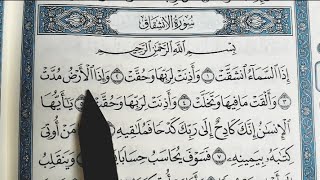 سُورَةُ الِانشِقَاقِ
بِسْمِ اللَّهِ الرَّحْمَٰنِ الرَّحِيمِ
إِذَا السَّمَاءُ انشَقَّتْ ١ وَأَذِنَتْ لِرَبِّهَا وَحُقَّتْ ٢ وَإِذَا الْأَرْضُ مُدَّتْ
٣ وَأَلْقَتْ مَا فِيهَا وَتَخَلَّتْ ٤ وَأَذِنَتْ لِرَبِّهَا وَحُقَّتْ ٥ يَا أَيُّهَا
الْإِنسَانُ إِنَّكَ كَادِحٌ إِلَىٰ رَبِّكَ كَدْحًا فَمُلَاقِيهِ ٦ فَأَمَّا مَنْ أُوتِيَ
كِتَابَهُ بِيَمِينِهِ ٧ فَسَوْفَ يُحَاسَبُ حِسَابًا وَيَنقَلِبُ